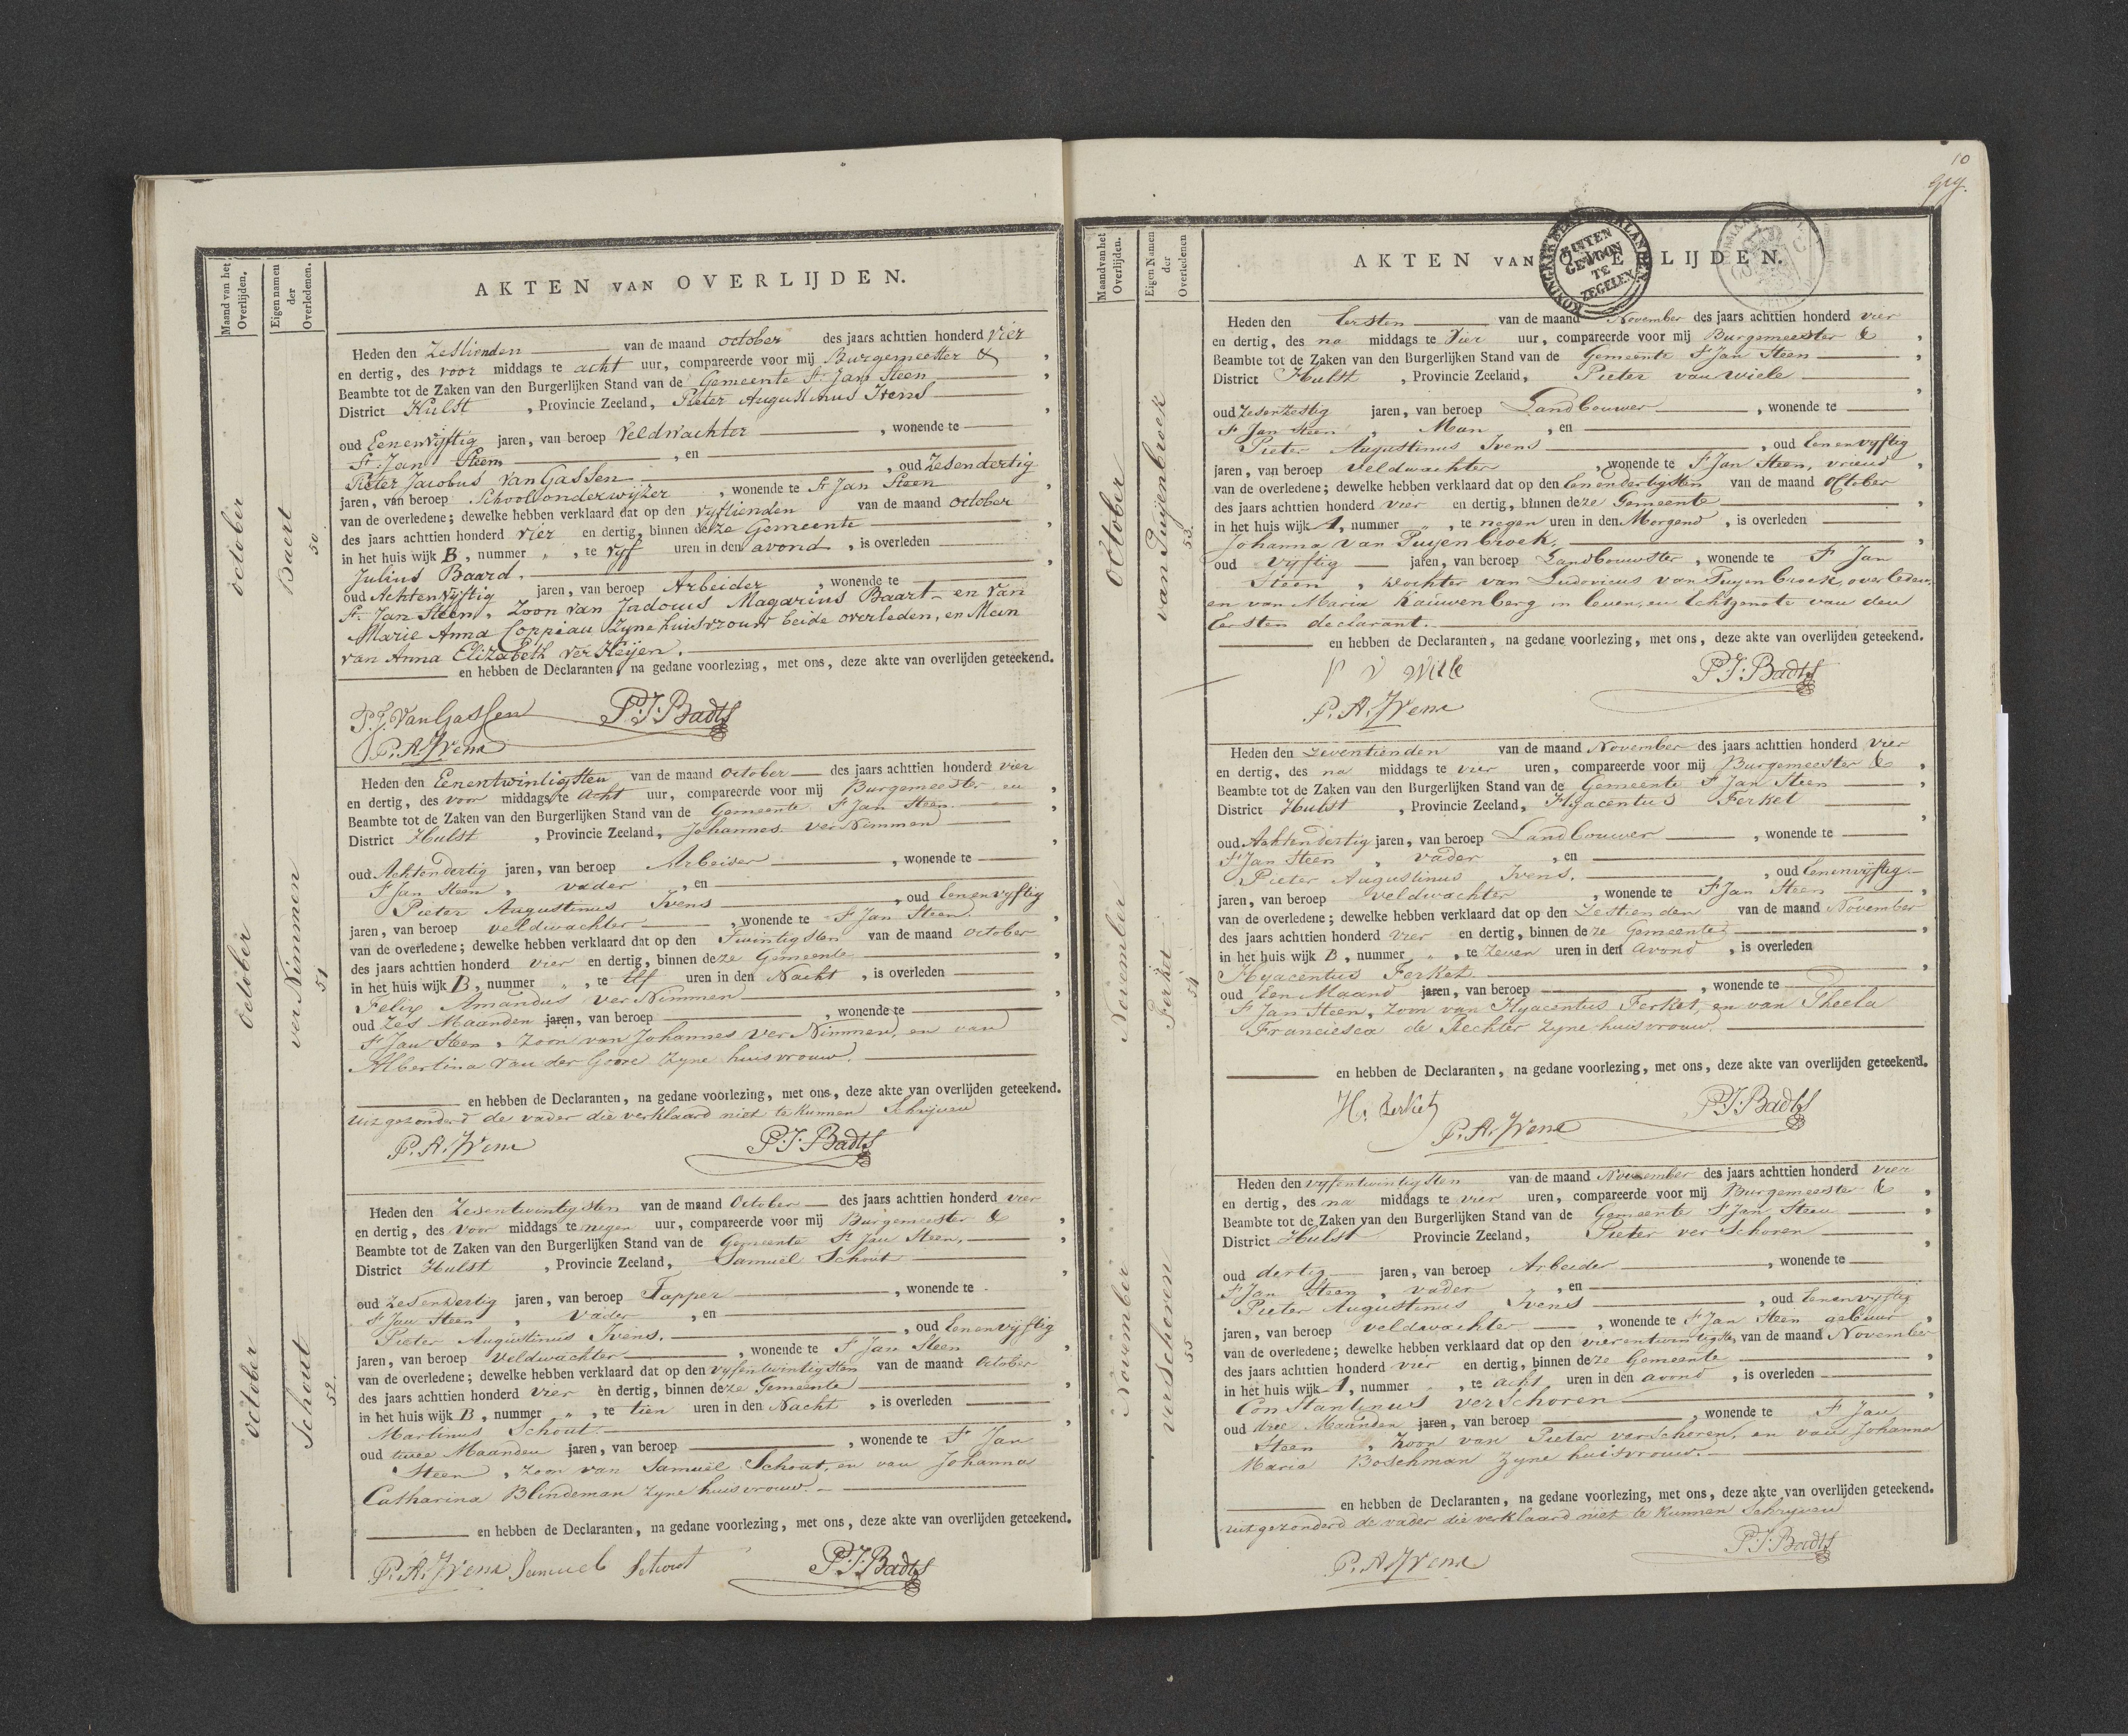 Maand van het
Overlijden.
Eigen namen
der
Overledenen.
AKTEN VAN OVERLIJDEN.
october
Baert
50
Heden den Zestienden van de maand october des jaars achttien honderd vier
en dertig, des voor middags te acht uur, compareerde voor mij Burgemeester &,
Beambte tot de Zaken van den Burgerlijken Stand van de Gemeente St Jan Steen,
District Hulst, Provincie Zeeland, Pieter Augustinus Ivens,
oud Eenenvijftig jaren, van beroep Veldwachter, wonende te
St. Jan Steen, en
Pieter Jacobus Van Gassen, oud Zesendertig
jaren, van beroep Schoolonderwijzer, wonende te St Jan Steen,
van de overledene; dewelke hebben verklaard dat op den vyftienden van de maand october
des jaars achttien honderd vier en dertig, binnen deze Gemeente,
in het huis wijk B, nummer „, te vyf uren in den avond, is overleden
Julius Baard.,
oud Achtenvyftig jaren, van beroep Arbeider, wonende te
St. Jan Steen, Zoon van Jadouis Magarins Baart en Van
Marie Anna Coppiau Zyne huisvrouw beide overleden, en Man
van Anna Elizabeth Ver Heijen.
en hebben de Declaranten, na gedane voorlezing, met ons, deze akte van overlijden geteekend.
P.J. Van Gassen P.J. Badts
P. A. Ivens
october
ver Nimmen
51
Heden den Eenentwintigsten van de maand October des jaars achttien honderd vier
en dertig, des voor middags te acht uur, compareerde voor mij Burgemeester en,
Beambte tot de Zaken van den Burgerlijken Stand van de Gemeente St Jan Steen.,
District Hulst, Provincie Zeeland, Johannes ver Nimmen,
oud Achtendertig jaren, van beroep Arbeider, wonende te
St Jan Steen, vader, en
Pieter Augustinus Ivens, oud Eenenvyftig
jaren, van beroep veldwachter, wonende te St Jan Steen.,
van de overledene; dewelke hebben verklaard dat op den Twintigsten van de maand October
des jaars achttien honderd vier en dertig, binnen deze Gemeente,
in het huis wijk B, nummer „, te Elf uren in den Nacht, is overleden
Felix Amandus ver Nimmen,
oud Zes Maanden jaren, van beroep, wonende te
St Jan Steen, Zoon van Johannes Ver Nimmen, en van
Albertina Van der Goore Zyne huisvrouw.
en hebben de Declaranten, na gedane voorlezing, met ons, deze akte van overlijden geteekend.
uitgezonderd de vader die verklaard niet te kunnen Schrijven
P. A. Ivens P.J. Badts
october
Schout
52
Heden den Zesentwintigsten van de maand October des jaars achttien honderd vier
en dertig, des voor middags te negen uur, compareerde voor mij Burgemeester &,
Beambte tot de Zaken van den Burgerlijken Stand van de Gemeente St Jan Steen.,
District Hulst, Provincie Zeeland, Samuël Schout,
oud Zesendertig jaren, van beroep Tapper, wonende te
St Jan Steen, Vader, en
Pieter Augustinus Ivens., oud Eenenvijftig
jaren, van beroep Veldwachter, wonende te St Jan Steen,
van de overledene; dewelke hebben verklaard dat op den vyfentwintigsten van de maand October
des jaars achttien honderd vier en dertig, binnen deze Gemeente,
in het huis wijk B, nummer „, te tien uren in den Nacht, is overleden
Martinus Schout.,
oud twee Maanden jaren, van beroep, wonende te St Jan
Steen, Zoon van Samuël Schout, en van Johanna
Catharina Blindeman Zyne huisvrouw.
en hebben de Declaranten, na gedane voorlezing, met ons, deze akte van overlijden geteekend.
P. A. Ivens Samuel Schout P.J. Badts
10
Maand van het
Overlijden.
Eigen Namen
der
Overledenen
AKTEN VAN OVERLIJDEN.
KONINGRYK DER NEDERLANDEN
GEWOON
TE
ZEGELEN
October
van Puijenbroek
53.
Heden den Eersten van de maand November des jaars achttien honderd vier
en dertig, des na middags te Vier uur, compareerde voor mij Burgemeester &,
Beambte tot de Zaken van den Burgerlijken Stand van de Gemeente St Jan Steen,
District Hulst, Provincie Zeeland, Pieter van Wiele,
oud Zesenzestig jaren, van beroep Landbouwer, wonende te
St Jan Steen, Man, en
Pieter Augustinus Ivens, oud Eenenvyftig
jaren, van beroep Veldwachter, wonende te St Jan Steen, vriend,
van de overledene; dewelke hebben verklaard dat op den Eenendertigsten van de maand October
des jaars achttien honderd vier en dertig, binnen deze Gemeente,
in het huis wijk A, nummer „, te negen uren in den Morgend, is overleden
Johanna Van Puyenbroek.,
oud Vijftig jaren, van beroep Landbouwster, wonende te St Jan
Steen, dochter van Ludovicus van Puyenbroek, overleden,
en van Maria Kauwenberg in leven, en Echtgenote van den
Eersten declarant.
en hebben de Declaranten, na gedane voorlezing, met ons, deze akte van overlijden geteekend.
P V Wiele P.J. Badts
P. A. Ivens
November
Ferket
54
Heden den Zeventienden van de maand November des jaars achttien honderd vier
en dertig, des na middags te vier uren, compareerde voor mij Burgemeester &,
Beambte tot de Zaken van den Burgerlijken Stand van de Gemeente St Jan Steen,
District Hulst, Provincie Zeeland, Hyacentus Ferket,
oud Achtendertig jaren, van beroep Landbouwer, wonende te
St Jan Steen, vader, en
Pieter Augustinus Ivens., oud Eenenvijftig.
jaren, van beroep veldwachter, wonende te St Jan Steen,
van de overledene; dewelke hebben verklaard dat op den Zestienden van de maand November
des jaars achttien honderd vier en dertig, binnen deze Gemeente,
in het huis wijk B, nummer „, te Zeven uren in den avond, is overleden
Hyacentus Ferket,
oud Een Maand jaren, van beroep, wonende te
St Jan Steen, Zoon van Hyacentus Ferket, en van Theela
Franciesca de Rechter Zyne huisvrouw.
en hebben de Declaranten, na gedane voorlezing, met ons, deze akte van overlijden geteekend.
H. Ferket P.J. Badts
P. A. Ivens
November
verschoren
55
Heden den vyfentwintigsten van de maand November des jaars achttien honderd vier
en dertig, des na middags te vier uren, compareerde voor mij Burgemeester &,
Beambte tot de Zaken van den Burgerlijken Stand van de Gemeente St Jan Steen,
District Hulst Provincie Zeeland, Pieter ver Schoren,
oud dertig jaren, van beroep Arbeider, wonende te
St Jan Steen, vader, en
Pieter Augustinus Ivens, oud Eenenvyftig
jaren, van beroep veldwachter, wonende te St Jan Steen gebuur,
van de overledene; dewelke hebben verklaard dat op den vierentwintigste, van de maand November
des jaars achttien honderd vier en dertig, binnen deze Gemeente,
in het huis wijk A, nummer „, te acht uren in den avond, is overleden
Constantinus verSchoren,
oud drie Maanden jaren, van beroep, wonende te St Jan
Steen, Zoon van Pieter verschoren, en van Johanna
Maria Boschman Zyne huisvrouw.
en hebben de Declaranten, na gedane voorlezing, met ons, deze akte van overlijden geteekend.
uitgezonderd de vader die verklaard niet te kunnen Schrijven
P. A. Ivens P.J. Badts